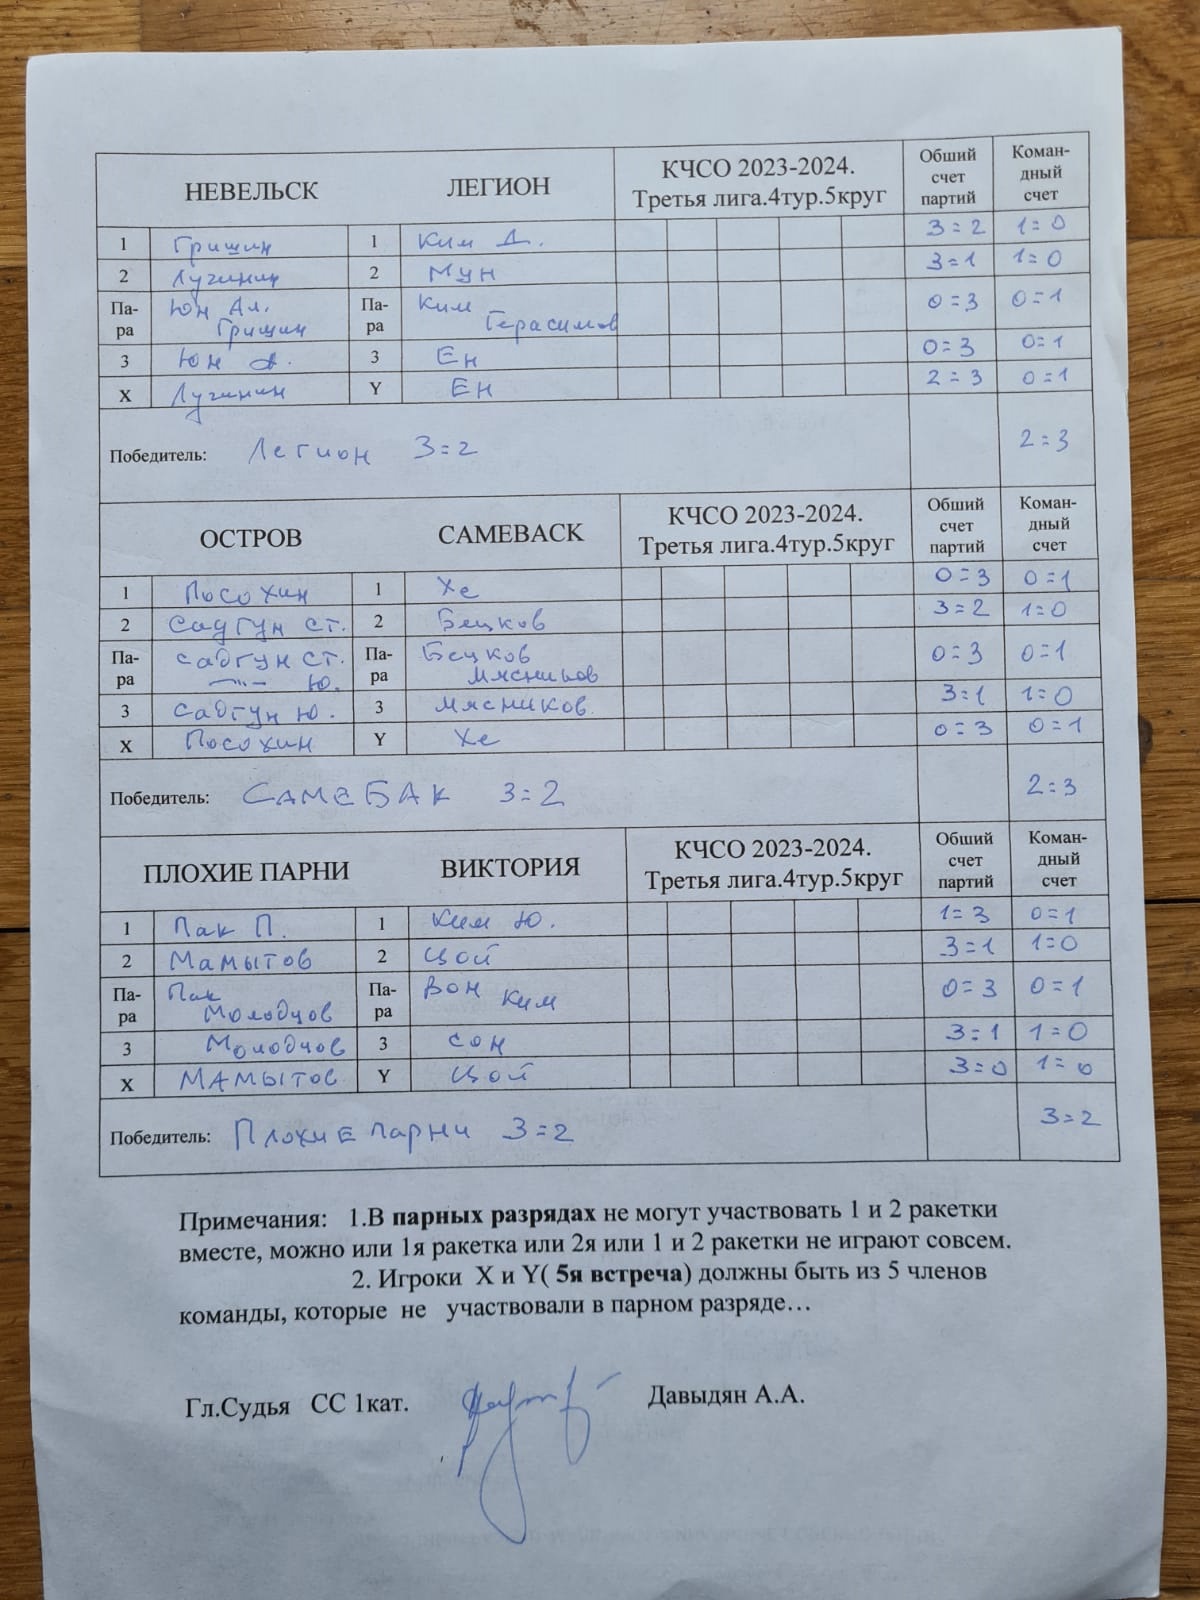 НЕВЕЛЬСК ЛЕГИОН КЧСО 2023-2024. Третья лига.4тур.5круг Обший счет партий Коман-дный счет
1 Гришин 1 Ким Д. 3=2 1=0
2 Лугинин 2 Мун 3=1 1=0
Па-ра Юн Ал. Гришин Па-ра Ким Герасимов 0=3 0=1
3 Юн А. 3 Ен 0=3 0=1
X Лугинин Y ЕН 2=3 0=1
Победитель: Легион 3=2 2=3
ОСТРОВ САМЕВАСК КЧСО 2023-2024. Третья лига.4тур.5круг Обший счет партий Коман-дный счет
1 Посохин 1 Хе 0=3 0=1
2 Садгун ст. 2 Бецков 3=2 1=0
Па-ра Садгун ст. —"— Ю. Па-ра Бецков Мясников 0=3 0=1
3 Садгун Ю. 3 Мясников. 3=1 1=0
X Посохин Y Хе 0=3 0=1
Победитель: САМЕБАК 3=2 2=3
ПЛОХИЕ ПАРНИ ВИКТОРИЯ КЧСО 2023-2024. Третья лига.4тур.5круг Обший счет партий Коман-дный счет
1 Пак П. 1 Ким Ю. 1=3 0=1
2 Мамытов 2 Цой 3=1 1=0
Па-ра Пак Молодцов Па-ра Вон Ким 0=3 0=1
3 Молодцов 3 Сон 3=1 1=0
X МАМЫТОВ Y Цой 3=0 1=0
Победитель: Плохие парни 3=2 3=2
Примечания: 1.В парных разрядах не могут участвовать 1 и 2 ракетки
вместе, можно или 1я ракетка или 2я или 1 и 2 ракетки не играют совсем.
2. Игроки X и Y( 5я встреча) должны быть из 5 членов
команды, которые не участвовали в парном разряде…
Гл.Судья СС 1кат. Давыдян А.А.